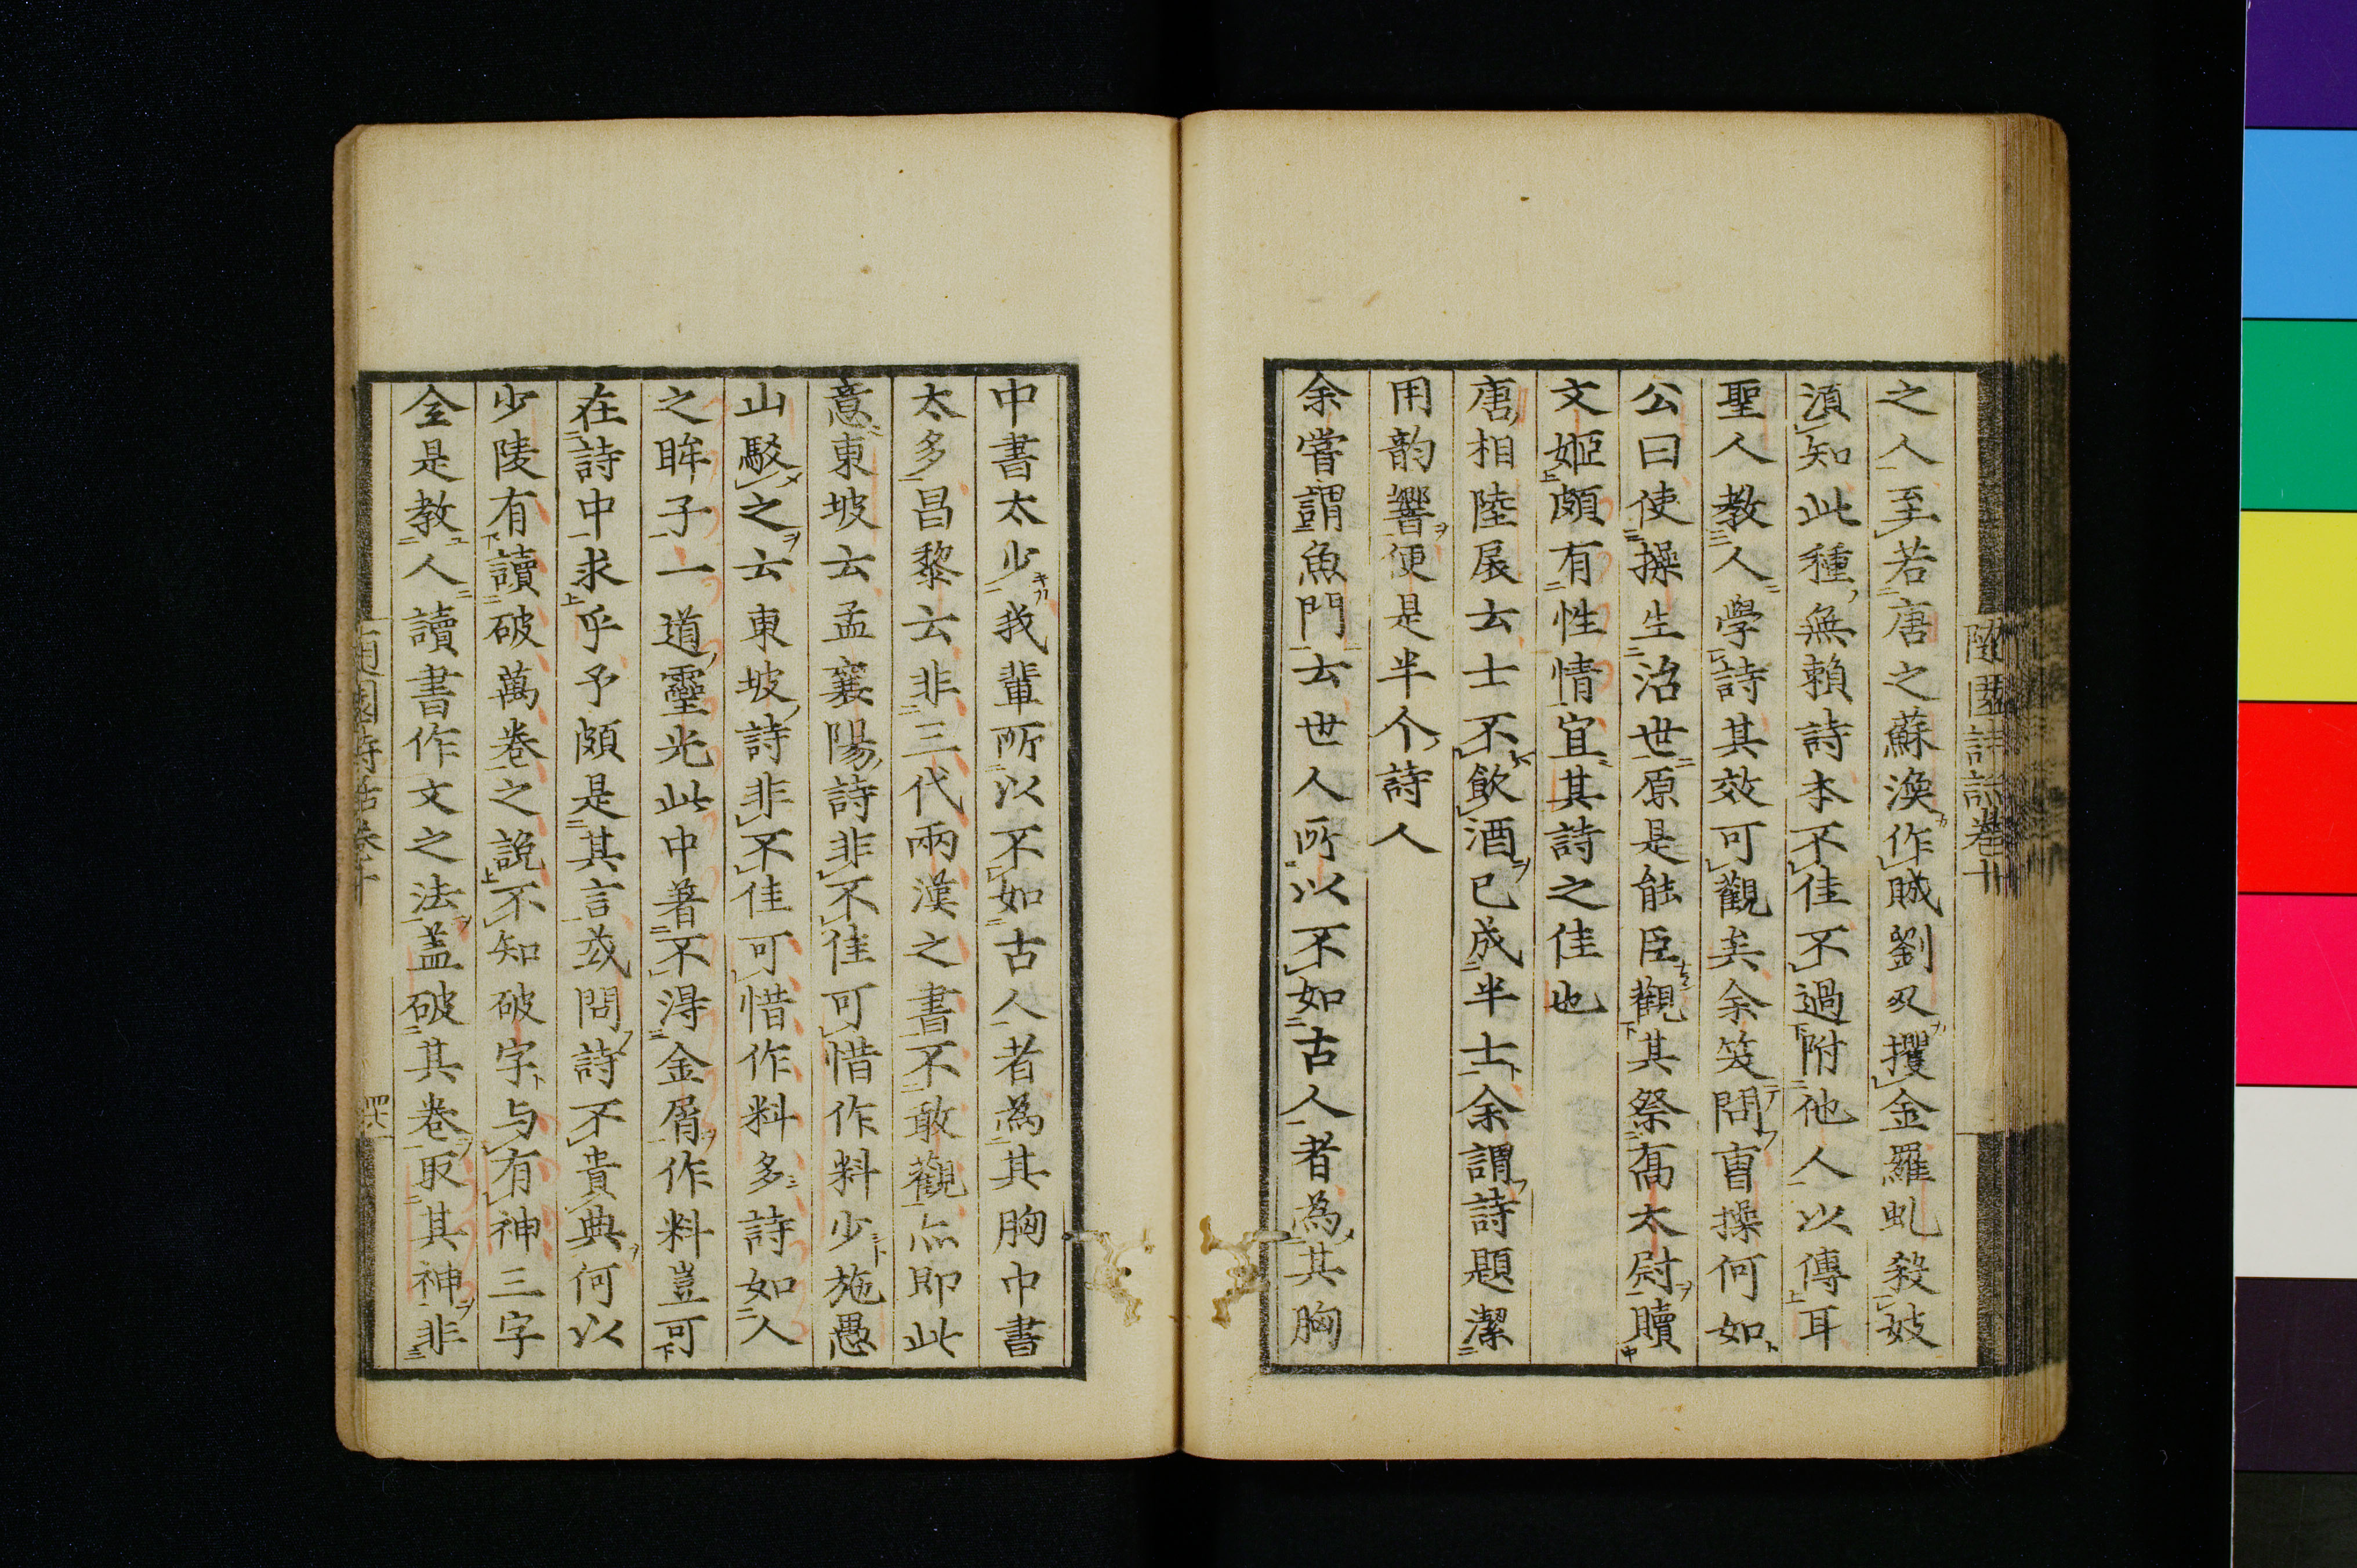 隨園詩話卷十
之人至若唐之蘇渙作賊劉叉攫金羅虬殺妓
須知此種無賴詩本不佳不過附他人以傳耳
聖人教人學詩其效可觀矣余笑問曺操何如
公曰使操生治世原是能臣觀其祭喬太尉贖
文姬頗有性情宜其詩之佳也
唐相陸扆云士不飲酒已成半士余謂詩題潔
用韵響便是半个詩人
余嘗謂魚門云世人所以不如古人者為其胸
中書太少我輩所以不如古人者為其胸中書
太多昌黎云非三代兩漢之書不敢觀亦即此
意東坡云孟襄陽詩非不佳可惜作料少施愚
山駁之云東坡詩非不佳可惜作料多詩如人
之眸子一道靈光此中著不得金屑作料豈可
在詩中求乎予頗是其言或問詩不貴典何以
少陵有讀破萬卷之說不知破字与有神三字
全是教人讀書作文之法盖破其卷取其神非
隨園詩話卷十